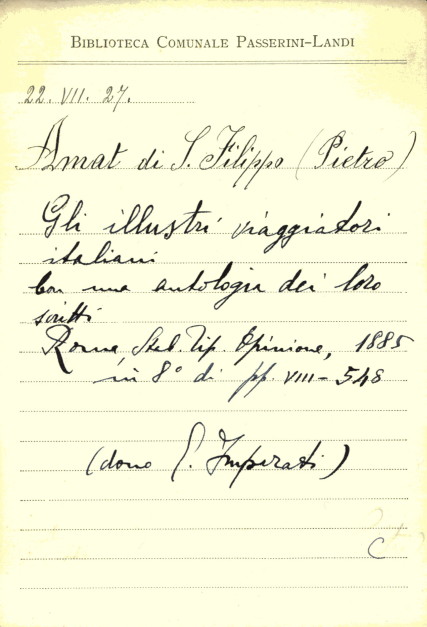 BIBLIOTECA COMUNALE PASSERINI-LANDI
22. VII. 27.
Amat di S. Filippo (Pietro)
Gli illustri viaggiatori
italiani
con una antologia dei loro
scritti
Roma, Stab. Tip. Opinione, 1885
in 8° di pp. VIII-548
(dono Imperati)
C